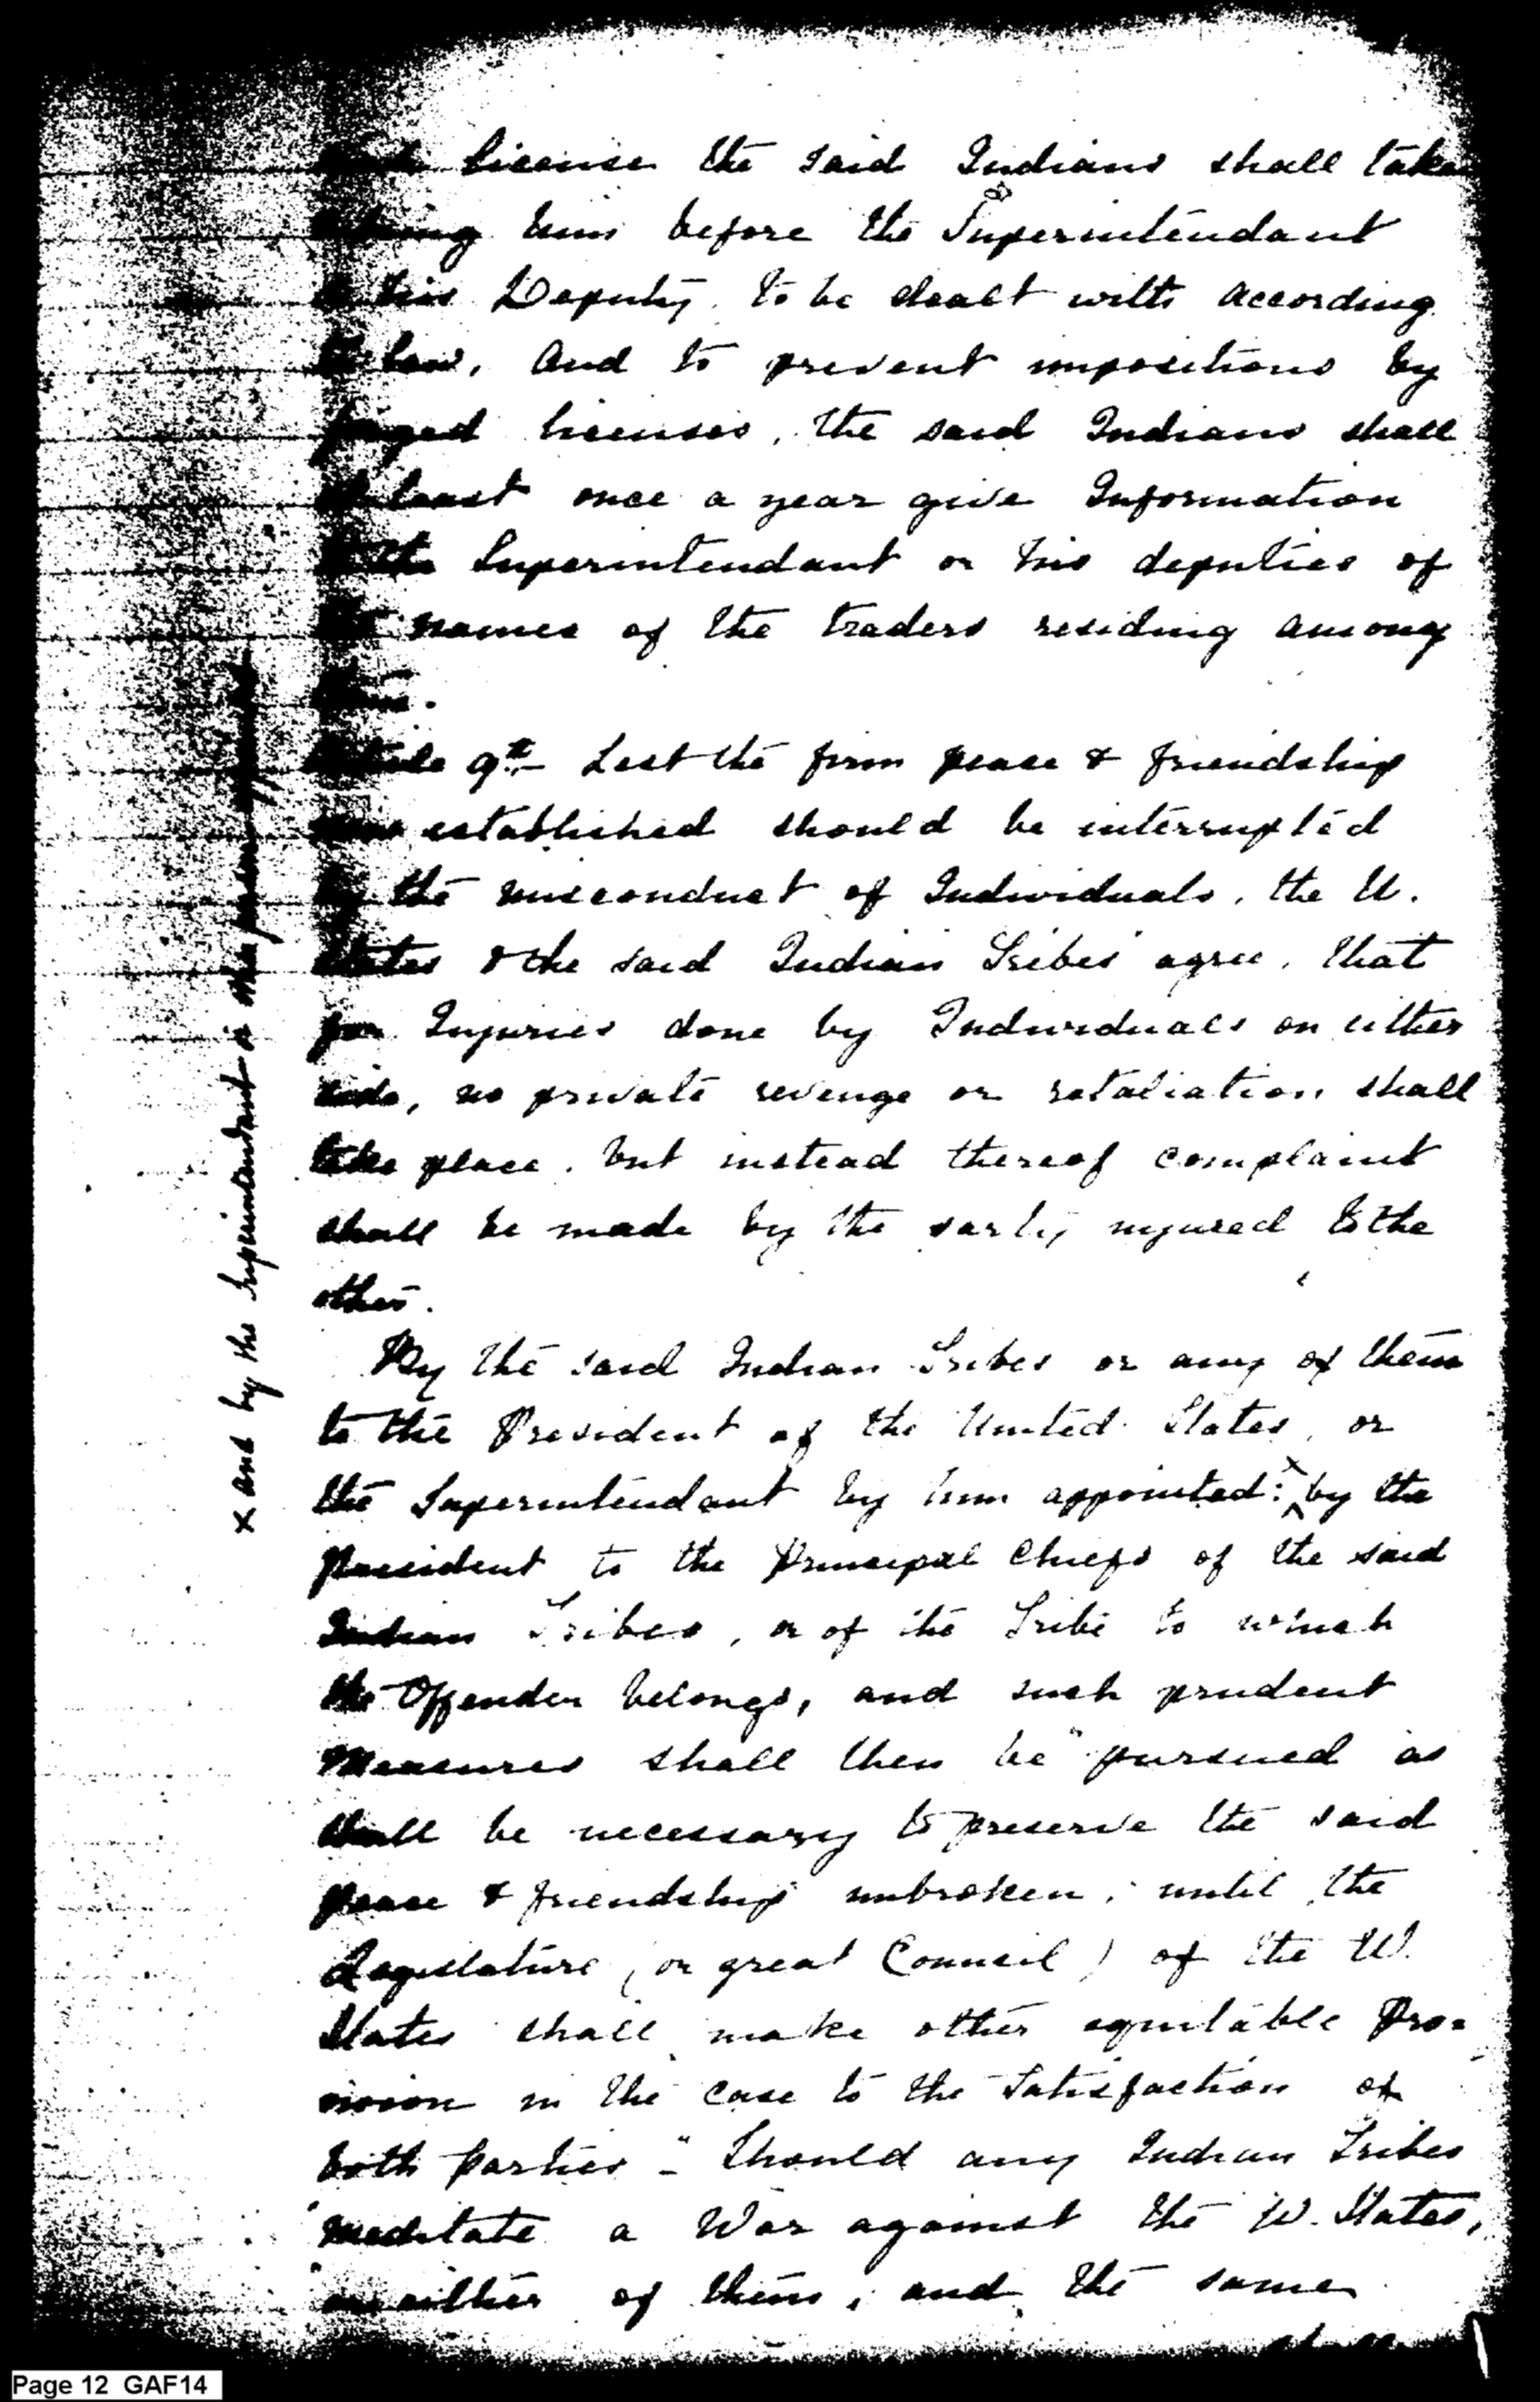 such license the said Indians shall take
& bring him before the Superintendant
or his Deputy, to be dealt with according
to law, And to prevent impositions by
forged licenses, the said Indians shall
at least once a year give Information
to the Superintendant or his deputies of
the names of the traders residing among
them.
Article 9th- Lest the firm peace & friendship
now established should be interrupted
by the misconduct of Individuals, the U.
States & the said Indian Tribes agree, that
for Injuries done by Individuals on either
side, no private revenge or retaliation shall
take place, but instead thereof complaint
shall be made by the party injured to the
other.
By the said Indian Tribes or any of them
to the President of the United States, or
the Superintendant by him appointed: x by the
President to the Principal Chiefs of the said
Indian Tribes, or of the Tribe to which
the Offender belongs, and such prudent
Measures shall then be pursued as
shall be necessary to preserve the said
peace & friendship unbroken, until the
Legislature (or great Council) of the U.
States shall make other equitable Pro=
vision in the case to the Satisfaction of
both parties - Should any Indian Tribes
meditate a War against the U. States,
or either of them, and the same
x and by the Superintendant or other person appointed
Page 12 GAF14